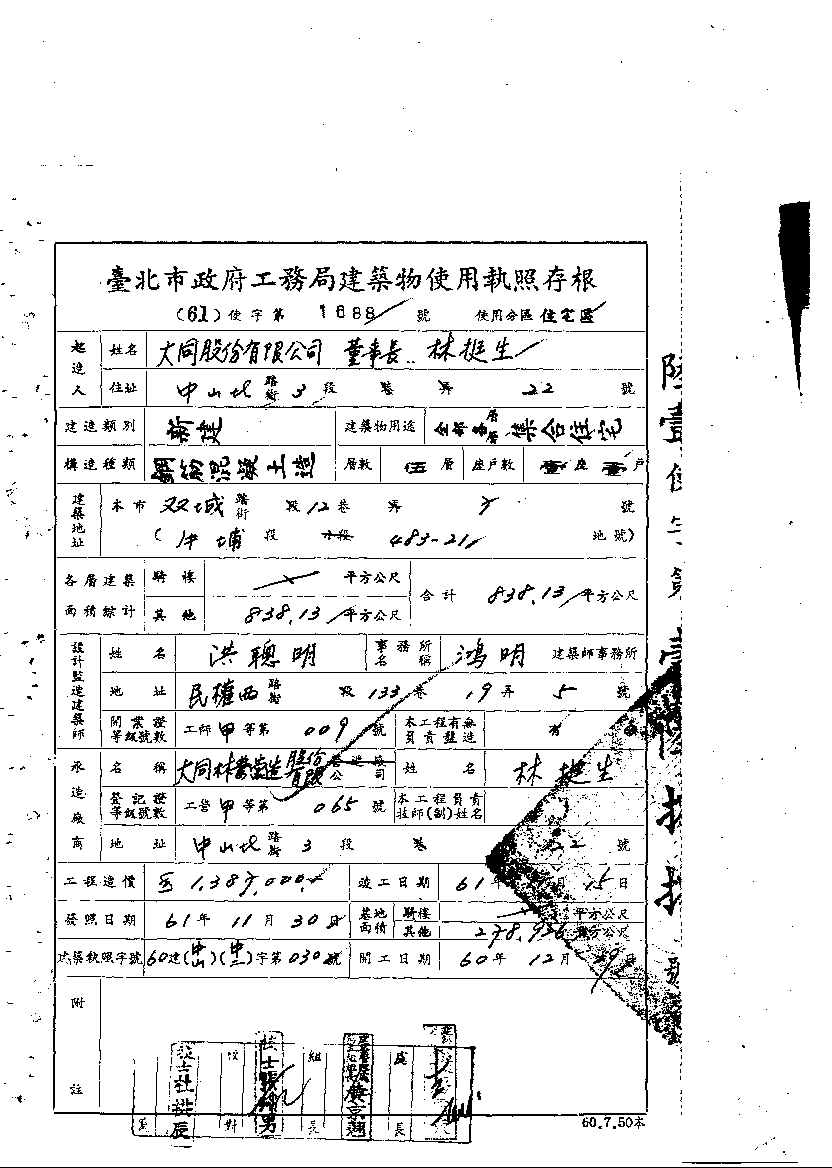 臺北市政府工務局建築物使用執照存根
(61)使字第 1688 號 使用分區 住宅區
起造人 姓名 大同股份有限公司 董事長 林挺生
住址 中山北 路街 3 段 巷 弄 22 號
建造類別 新建 建築物用途 全部各層 集合住宅
構造種類 鋼筋混凝土造 層數 伍 層 座戶數 壹 座 壹 戶
建築地址 本市 双城 路街 段 12 巷 弄 號
( 埔 段 小段 483-21 地號)
各層建築面積綜計 騎樓 平方公尺 合計 838.13 平方公尺
其他 838.13 平方公尺
設計監造建築師 姓名 洪聰明 事務所名稱 鴻明 建築師事務所
地址 民權西 路街 段 133 巷 19 弄 5 號
開業證等級號數 工師 甲 等第 009 號 本工程有無負責監造 有
承造廠商 名稱 大同林業營造股份有限公司 姓名 林挺生
登記證等級號數 工營 甲 等第 065 號 本工程負責技師(副)姓名
地址 中山北 路街 3 段 巷 22 號
工程造價 1,387,000 竣工日期 61 年 月 15 日
發照日期 61 年 11 月 30 日 基地面積 騎樓 平方公尺
其他 278.926 平方公尺
建築執照字號 60建(中山)(中)字第030號 開工日期 60 年 12 月 29 日
附註
校對 組長 處長
60.7.50本
陸壹使字第壹陸捌捌號